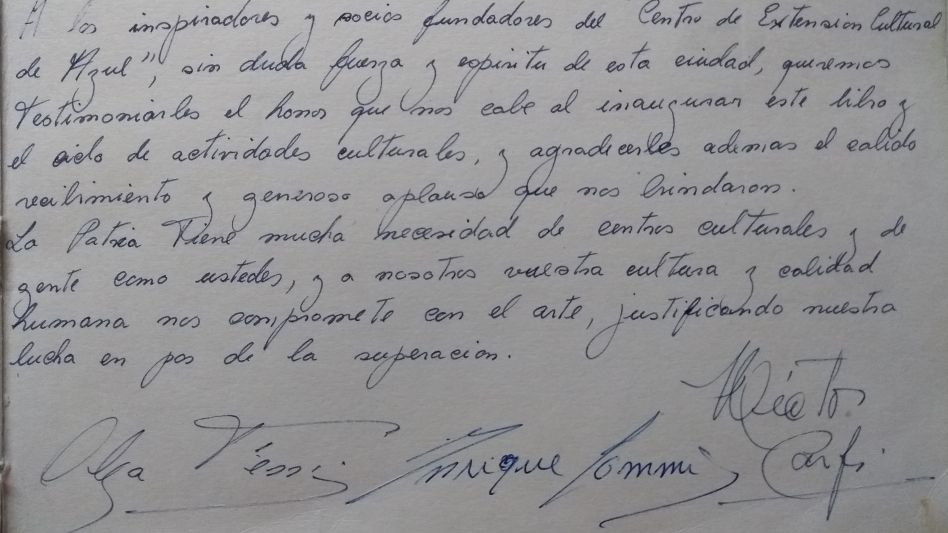 A los inspiradores y socios fundadores del Centro de Extension Cultural
de Azul", sin duda fuerza y espiritu de esta ciudad, queremos
Testimoniarles el honor que nos cabe al inaugurar este libro y
el ciclo de actividades culturales, y agradecerles ademas el calido
recibimiento y generoso aplauso que nos brindaron.
La Patria Tiene mucha necesidad de centros culturales y de
gente como ustedes, y a nosotros vuestra cultura y calidad
humana nos compromete con el arte, justificando nuestra
lucha en pos de la superacion.
Héctor
Olga Enrique Tommi Carfi